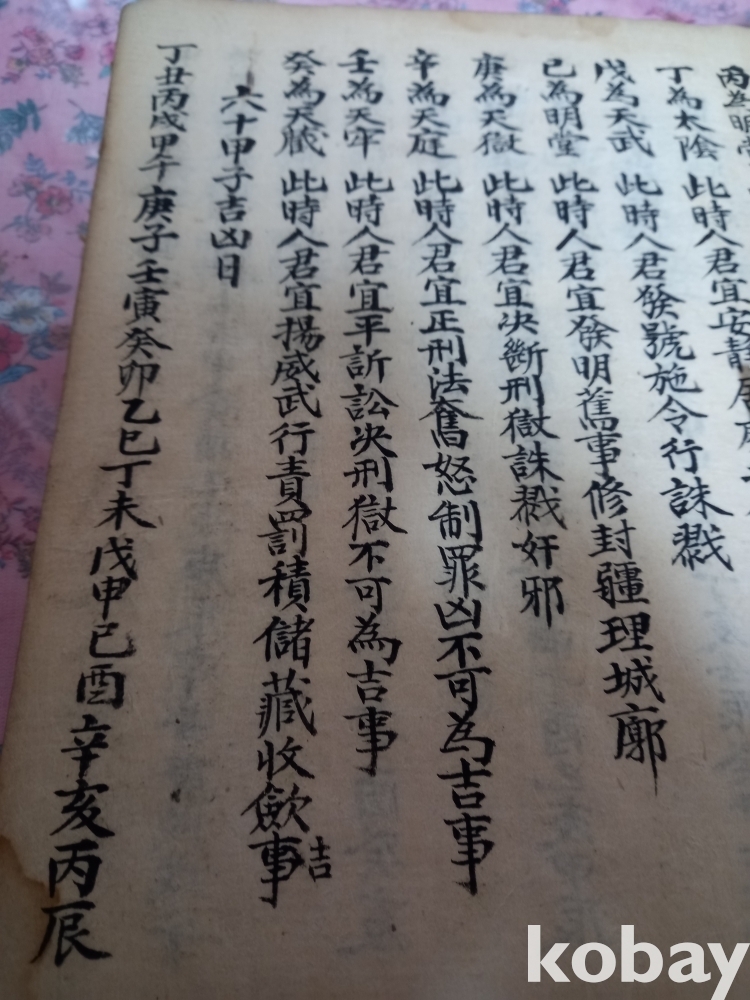 丙為明堂
丁為太陰 此時人君宜安靜居
戊為天武 此時人君發號施令行誅戮
己為明堂 此時人君宜發明舊事修封疆理城廓
庚為天獄 此時人君宜决斷刑獄誅戮奸邪
辛為天庭 此時人君宜正刑法奮怒制罪凶不可為吉事
壬為天牢 此時人君宜平訴訟决刑獄不可為吉事
癸為天藏 此時人君宜揚威武行責罰積儲藏收歛事吉
六十甲子吉凶日
丁丑丙戌甲午庚子壬寅癸卯乙巳丁未戊申己酉辛亥丙辰
kobay